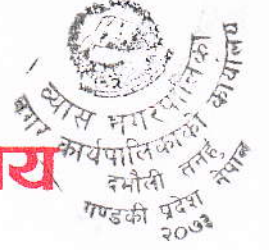 व्यास नगरपालिका
नगर कार्यपालिकाको कार्यालय
दमौली तनहुँ, नेपाल
गण्डकी प्रदेश
२०७३
य